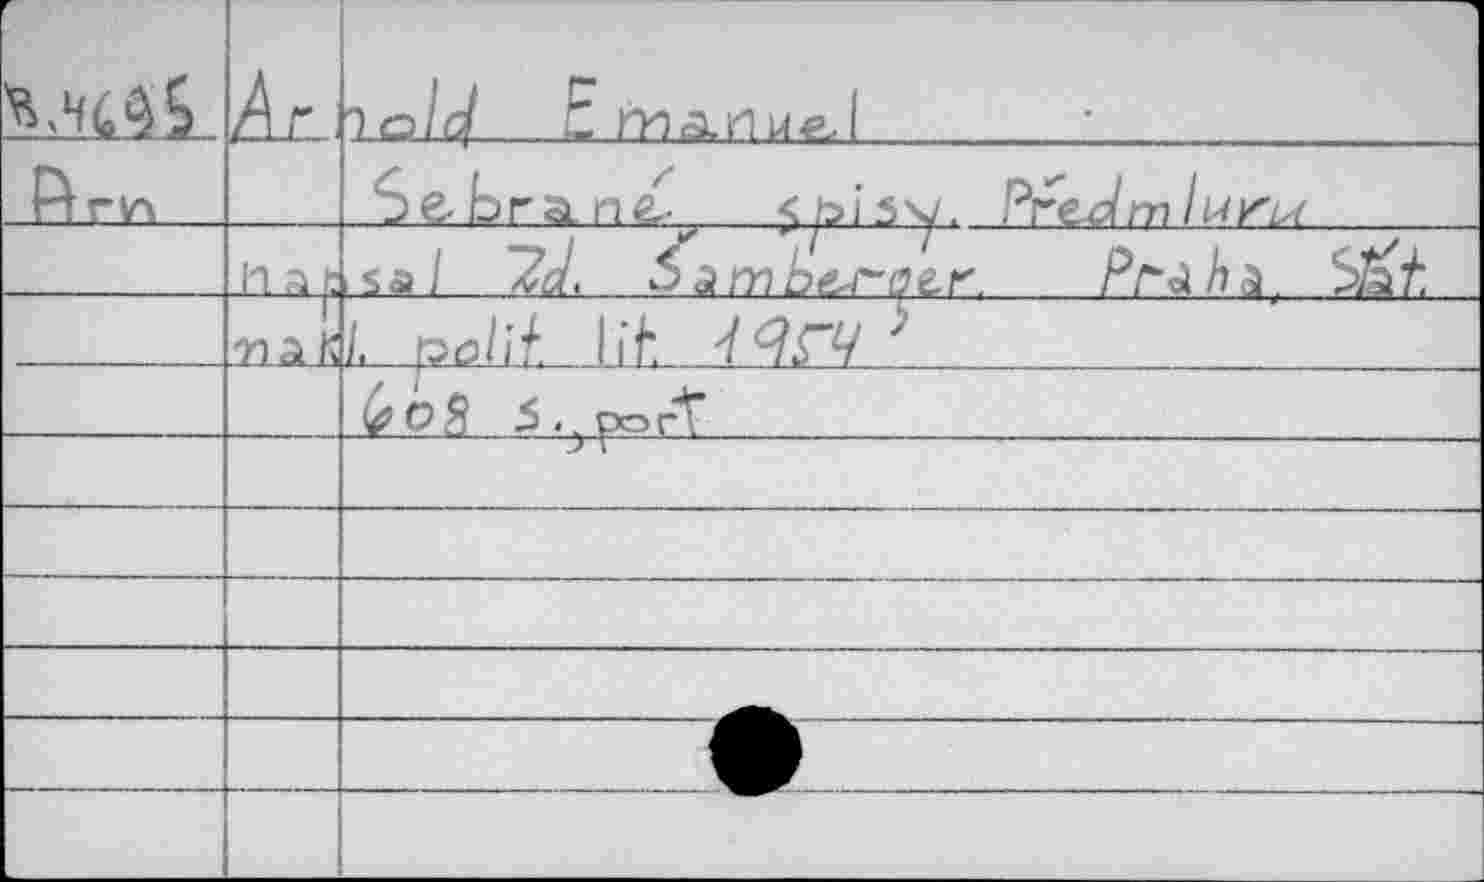 B.4695 Arnold Emanuel
Arn Sebrané spisy. Předmluvu
napsal Zd. Šamberger. Praha, Stát.
nakl. polit. lit. 1954
608 s., port